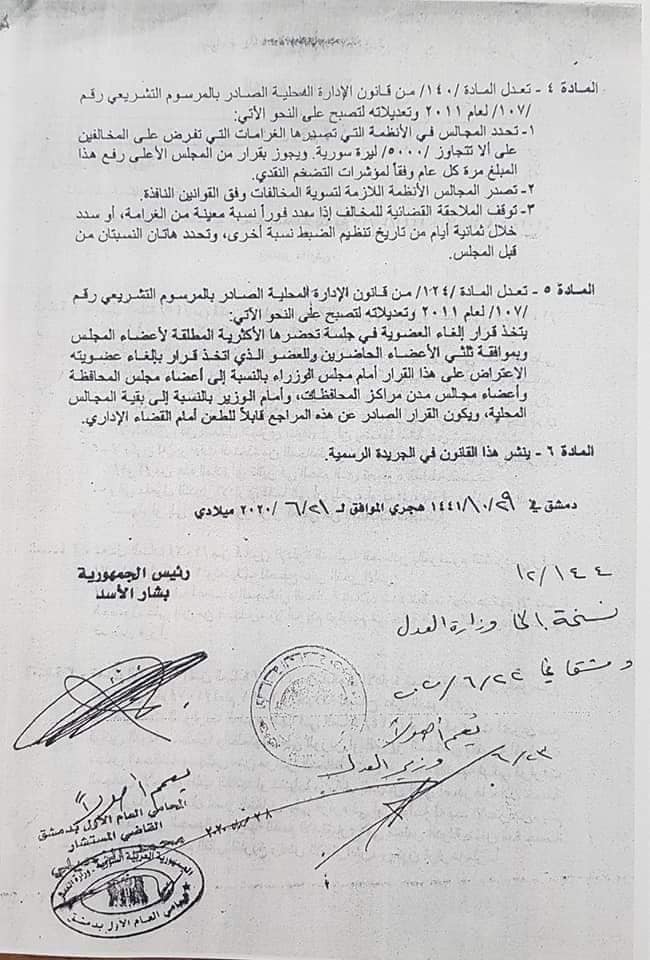 المادة ٤ - تعدل المادة /١٤٠/ من قانون الإدارة المحلية الصادر بالمرسوم التشريعي رقم
/١٠٧/ لعام ٢٠١١ وتعديلاته لتصبح على النحو الآتي:
١- تحدد المجالس في الأنظمة التي تصدرها الغرامات التي تفرض على المخالفين
على ألا تتجاوز /٥٠٠٠/ ليرة سورية. ويجوز بقرار من المجلس الأعلى رفع هذا
المبلغ مرة كل عام وفقاً لمؤشرات التضخم النقدي.
٢- تصدر المجالس الأنظمة اللازمة لتسوية المخالفات وفق القوانين النافذة.
٣- توقف الملاحقة القضائية للمخالف إذا سدد فوراً نسبة معينة من الغرامة، أو سدد
خلال ثمانية أيام من تاريخ تنظيم الضبط نسبة أخرى، وتحدد هاتان النسبتان من
قبل المجلس.
المادة ٥ - تعدل المادة /١٢٤/ من قانون الإدارة المحلية الصادر بالمرسوم التشريعي رقم
/١٠٧/ لعام ٢٠١١ وتعديلاته لتصبح على النحو الآتي:
يتخذ قرار إلغاء العضوية في جلسة تحضرها الأكثرية المطلقة لأعضاء المجلس
وبموافقة ثلثي الأعضاء الحاضرين وللعضو الذي اتخذ قرار بإلغاء عضويته
الاعتراض على هذا القرار أمام مجلس الوزراء بالنسبة إلى أعضاء مجلس المحافظة
وأعضاء مجالس مدن مراكز المحافظات، وأمام الوزير بالنسبة إلى بقية المجالس
المحلية، ويكون القرار الصادر عن هذه المراجع قابلاً للطعن أمام القضاء الإداري.
المادة ٦ - ينشر هذا القانون في الجريدة الرسمية.
دمشق في ١٤٤١/١٠/٢٩ هجري الموافق لـ ٢٠٢٠/٦/٢١ ميلادي
رئيس الجمهورية
بشار الأسد
١٢/١٤٤
نسخة إلى وزارة العدل
دمشق في
يعمم أصولاً
٦/٢٣
وزير العدل
يعمم أصولاً
المحامي العام الأول بدمشق
القاضي المستشار
الجمهورية العربية السورية - وزارة العدل
المحامي العام الأول بدمشق